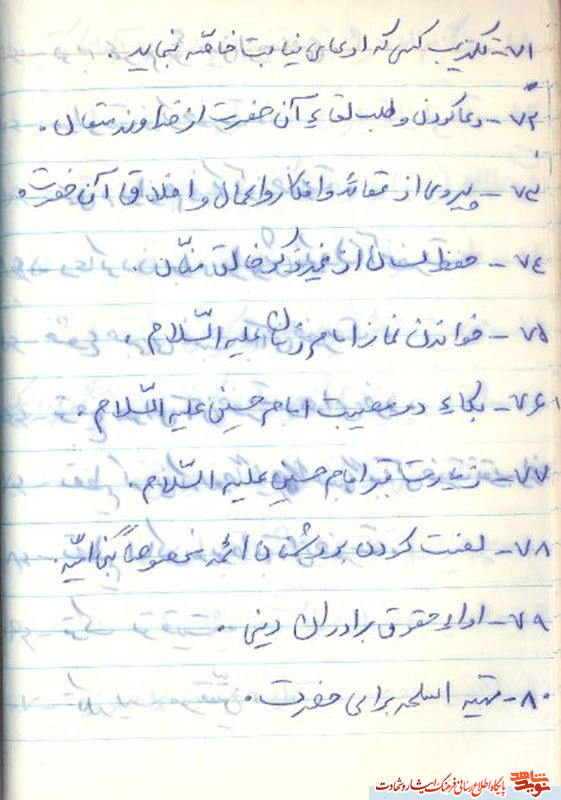 ۷۱- تکذیب کسی که ادعای نیابت خاصه نماید.
۷۲- دعا کردن و طلب لقاء آن حضرت از خداوند متعال.
۷۳- پیروی از عقائد و افکار و اعمال و اخلاق آن حضرت.
۷۴- حفظ لسان از غیر ذکر خالق منّان.
۷۵- خواندن نماز امام زمان علیه السّلام.
۷۶- بکاء در مصیبت امام حسین علیه السّلام.
۷۷- زیارت قبر امام حسین علیه السّلام.
۷۸- لعنت کردن بر دشمنان ائمه خصوصاً بنی امیّه.
۷۹- اداء حقوق برادران دینی.
۸۰- تهیه اسلحه برای حضرت.
نوید شاهد پایگاه اطلاع رسانی فرهنگ ایثار و شهادت